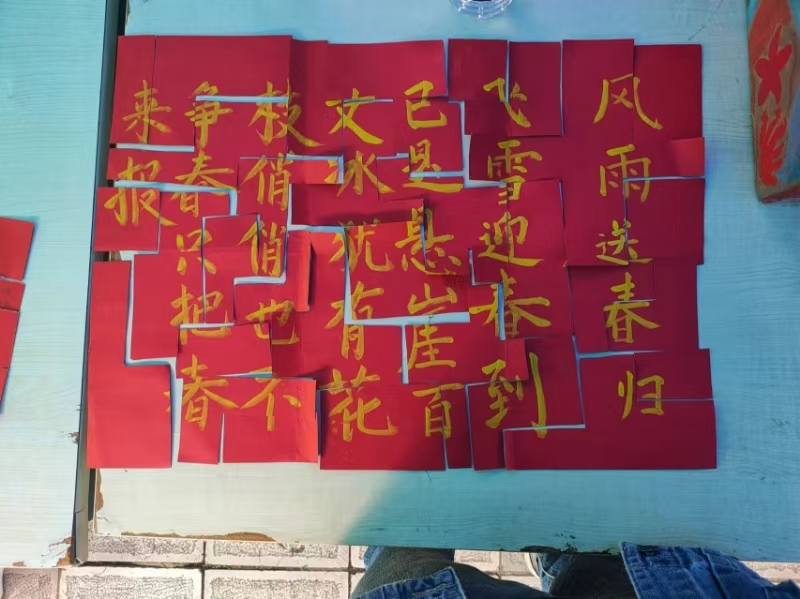 风雨送春归
飞雪迎春到
已是悬崖百
丈冰犹有花
枝俏俏也不
争春只把春
来报